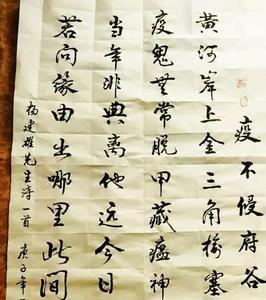 疫不侵府谷
黄河岸上金三角榆塞
疫鬼無常脱甲藏瘟神
当年非典離他远今日
若问缘由出哪里此间
杨建雄先生诗一首 庚子年